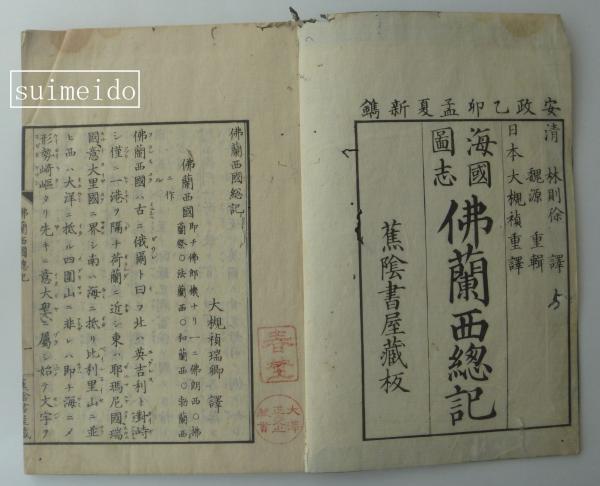 安政乙卯孟夏新鐫
清 林則徐 譯
魏源 重輯
日本 大槻禎 重譯
海國圖志
佛蘭西總記
蕉陰書屋藏板
佛蘭西國總記
大槻禎瑞卿 譯
佛蘭西國 即チ佛郎機ナリ一ニ佛朗西○佛
蘭祭○法蘭西○和蘭西○勃蘭西
ニ作ル
佛蘭西國ハ古ニ俄爾ト曰フ北ハ英吉利ト對峙
シ僅ニ一港ヲ隔テ荷蘭ニ近シ東ハ耶瑪尼國瑞
國意大里國ニ界シ南ハ海ニ抵リ比利里山ニ並
ヒ西ハ大洋ニ抵ル四圍山ニ非レハ即チ海ニメ
形勢崎嶇タリ先キニ意大里ニ屬シ始テ文字ヲ
佛蘭西國總記
一
simeido